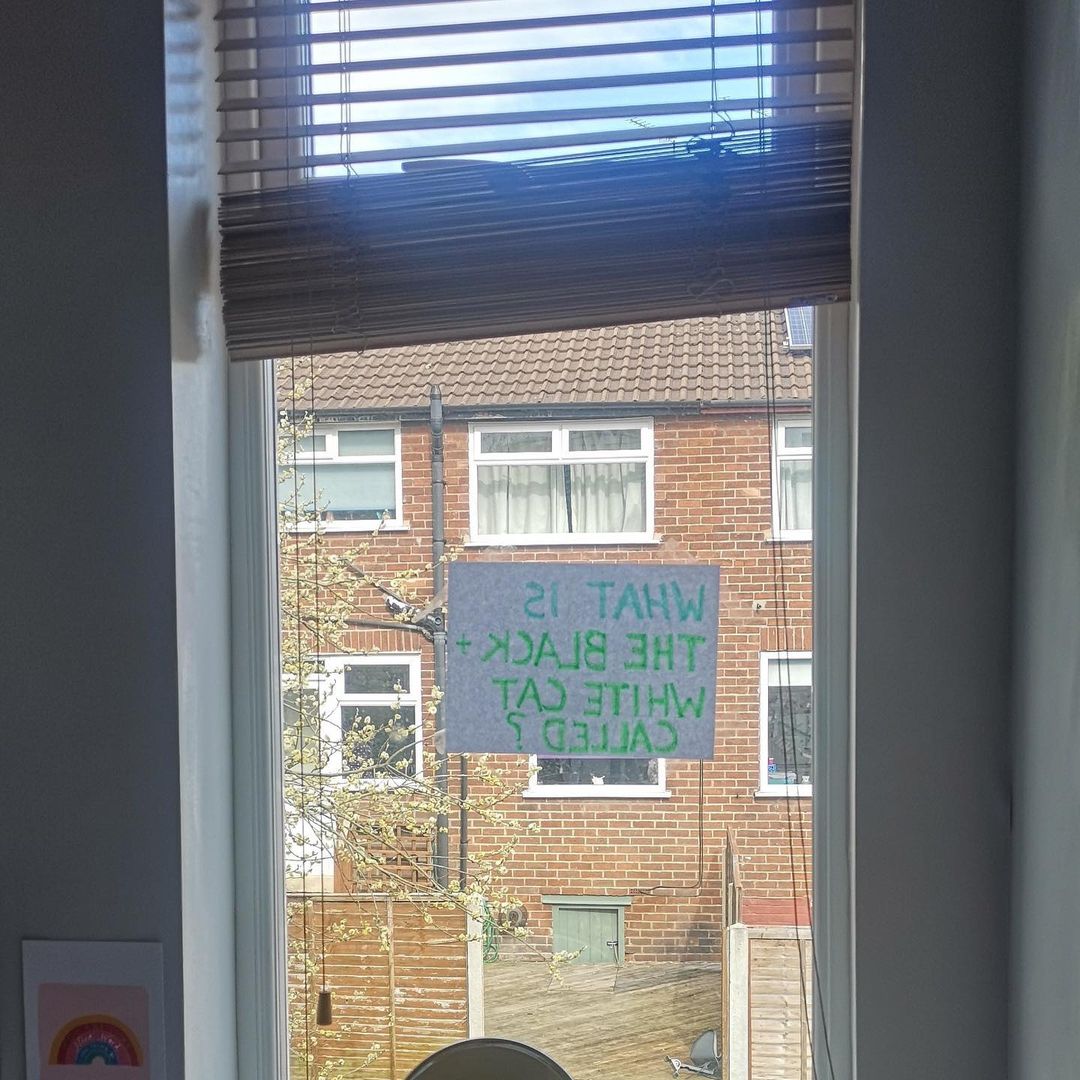 WHAT IS
THE BLACK +
WHITE CAT
CALLED?